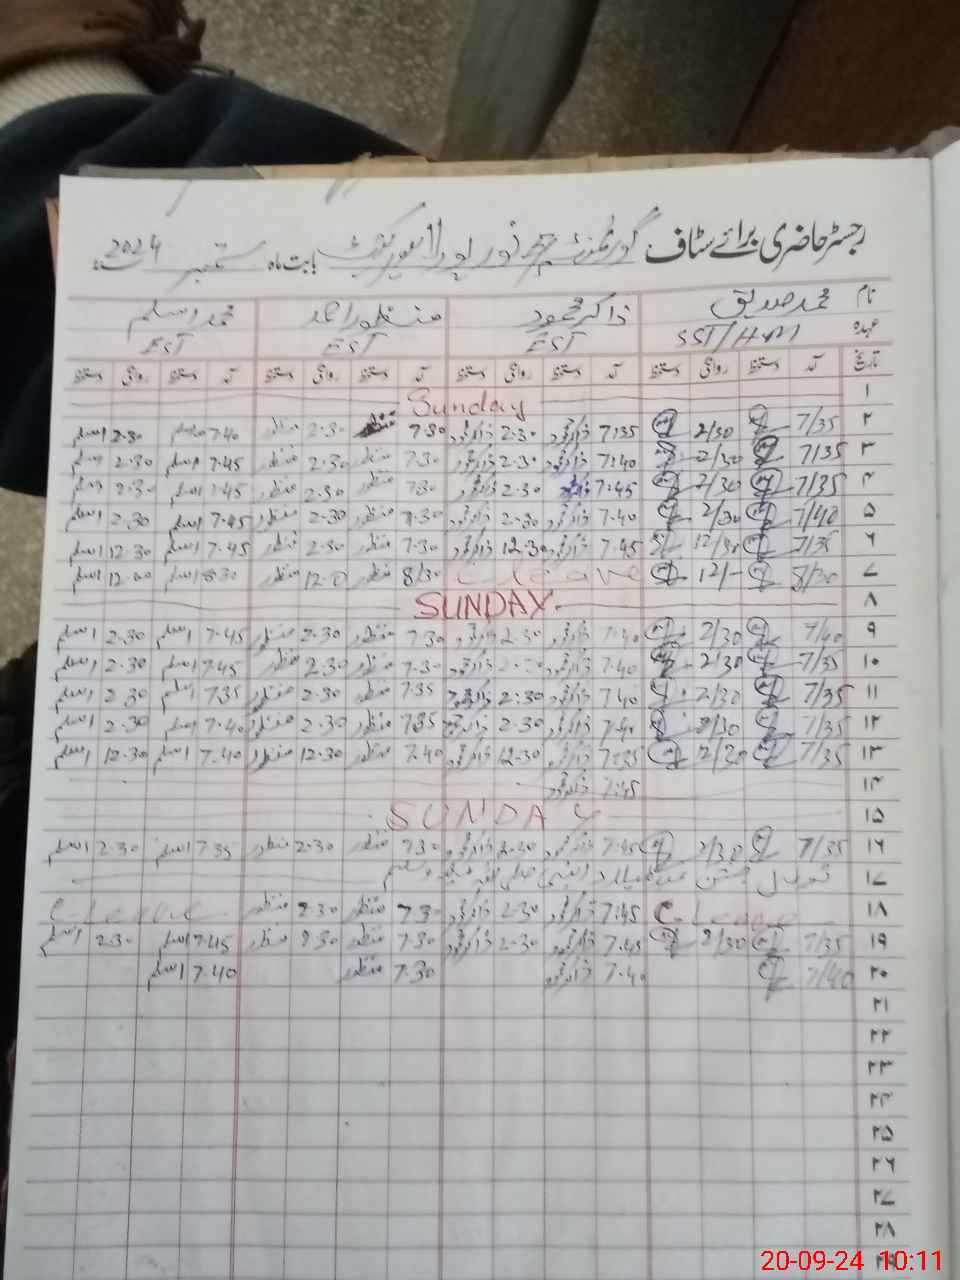 رجسٹر حاضری برائے سٹاف گورنمنٹ نور پور بابت ماہ ستمبر 2024ء
نام محمد صدیق ذاکر محمود منظور احمد محمد اسلم
عہدہ SST/H.M EST EST EST
تاریخ آمد دستخط روانگی دستخط آمد دستخط روانگی دستخط آمد دستخط روانگی دستخط آمد دستخط روانگی دستخط
۱ Sunday
۲ 7/35 2/30 7:35 ذاکر محمود 2-30 ذاکر محمود 7-30 منظور 2-30 منظور 7-40 اسلم 2-30 اسلم
۳ 7/35 2/30 7:40 ذاکر محمود 2-30 ذاکر محمود 7-30 منظور 2-30 منظور 7-45 اسلم 2-30 اسلم
۴ 7/35 2/30 7:45 ذاکر محمود 2-30 ذاکر محمود 7-30 منظور 2-30 منظور 7-45 اسلم 2-30 اسلم
۵ 7/40 2/30 7-40 ذاکر محمود 2-30 ذاکر محمود 7-30 منظور 2-30 منظور 7-45 اسلم 2-30 اسلم
۶ 7/35 12/30 7-45 ذاکر محمود 12-30 ذاکر محمود 7-30 منظور 2-30 منظور 7-45 اسلم 12-30 اسلم
۷ 8/30 12/- C-leave 8/30 منظور 12-0 منظور 8-30 اسلم 12-00 اسلم
۸ SUNDAY
۹ 7/40 2/30 7-40 ذاکر محمود 2-30 ذاکر محمود 7-30 منظور 2-30 منظور 7-45 اسلم 2-30 اسلم
۱۰ 7/35 2/30 7-40 ذاکر محمود ذاکر محمود 7-30 منظور 2-30 منظور 7-45 اسلم 2-30 اسلم
۱۱ 7/35 2/30 7-40 ذاکر محمود 2-30 ذاکر محمود 7-35 منظور 2-30 منظور 7-35 اسلم 2-30 اسلم
۱۲ 7/35 2/30 7-40 ذاکر محمود 2-30 ذاکر محمود 7-35 منظور 2-30 منظور 7-40 اسلم 2-30 اسلم
۱۳ 7/35 12/30 ذاکر محمود 12-30 ذاکر محمود 7-40 منظور 12-30 منظور 7-40 اسلم 12-30 اسلم
۱۴ 7:45 ذاکر محمود
۱۵ SUNDAY
۱۶ 7/35 2/30 7-45 ذاکر محمود 2-30 ذاکر محمود 7-30 منظور 2-30 منظور 7-35 اسلم 2-30 اسلم
۱۷ تعطیل جشن عید میلاد النبی صلی اللہ علیہ وسلم
۱۸ C-Leave 7:45 ذاکر محمود 2-30 ذاکر محمود 7-30 منظور 2-30 منظور C-Leave
۱۹ 7/35 2/30 7-45 ذاکر محمود 2-30 ذاکر محمود 7-30 منظور 2-30 منظور 7-45 اسلم 2-30 اسلم
۲۰ 7/40 7-40 ذاکر محمود 7-30 منظور 7-40 اسلم
۲۱
۲۲
۲۳
۲۴
۲۵
۲۶
۲۷
۲۸
۲۹
20-09-24 10:11